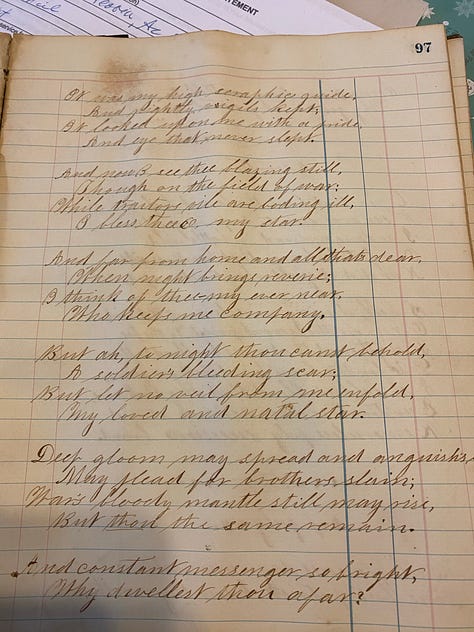 97
It was my high seraphic guide,
And nightly vigils kept;
It looked upon me with a pride,
And eye that never slept.
And now I see thee blazing still,
Though on the field of war;
While traitors vile are boding ill,
I bless thee my star.
And far from home and all that's dear,
When night brings reverie;
I think of thee my ever near,
Who keeps me company.
But ah, to night thou canst behold,
A soldiers bleeding scar;
But let no veil from me enfold,
My loved and natal star.
Deep gloom may spread and anguish
May plead for brothers slain;
Wars bloody mantle still may rise,
But thou the same remain.
And constant messenger so bright,
Why dwellest thou afar?